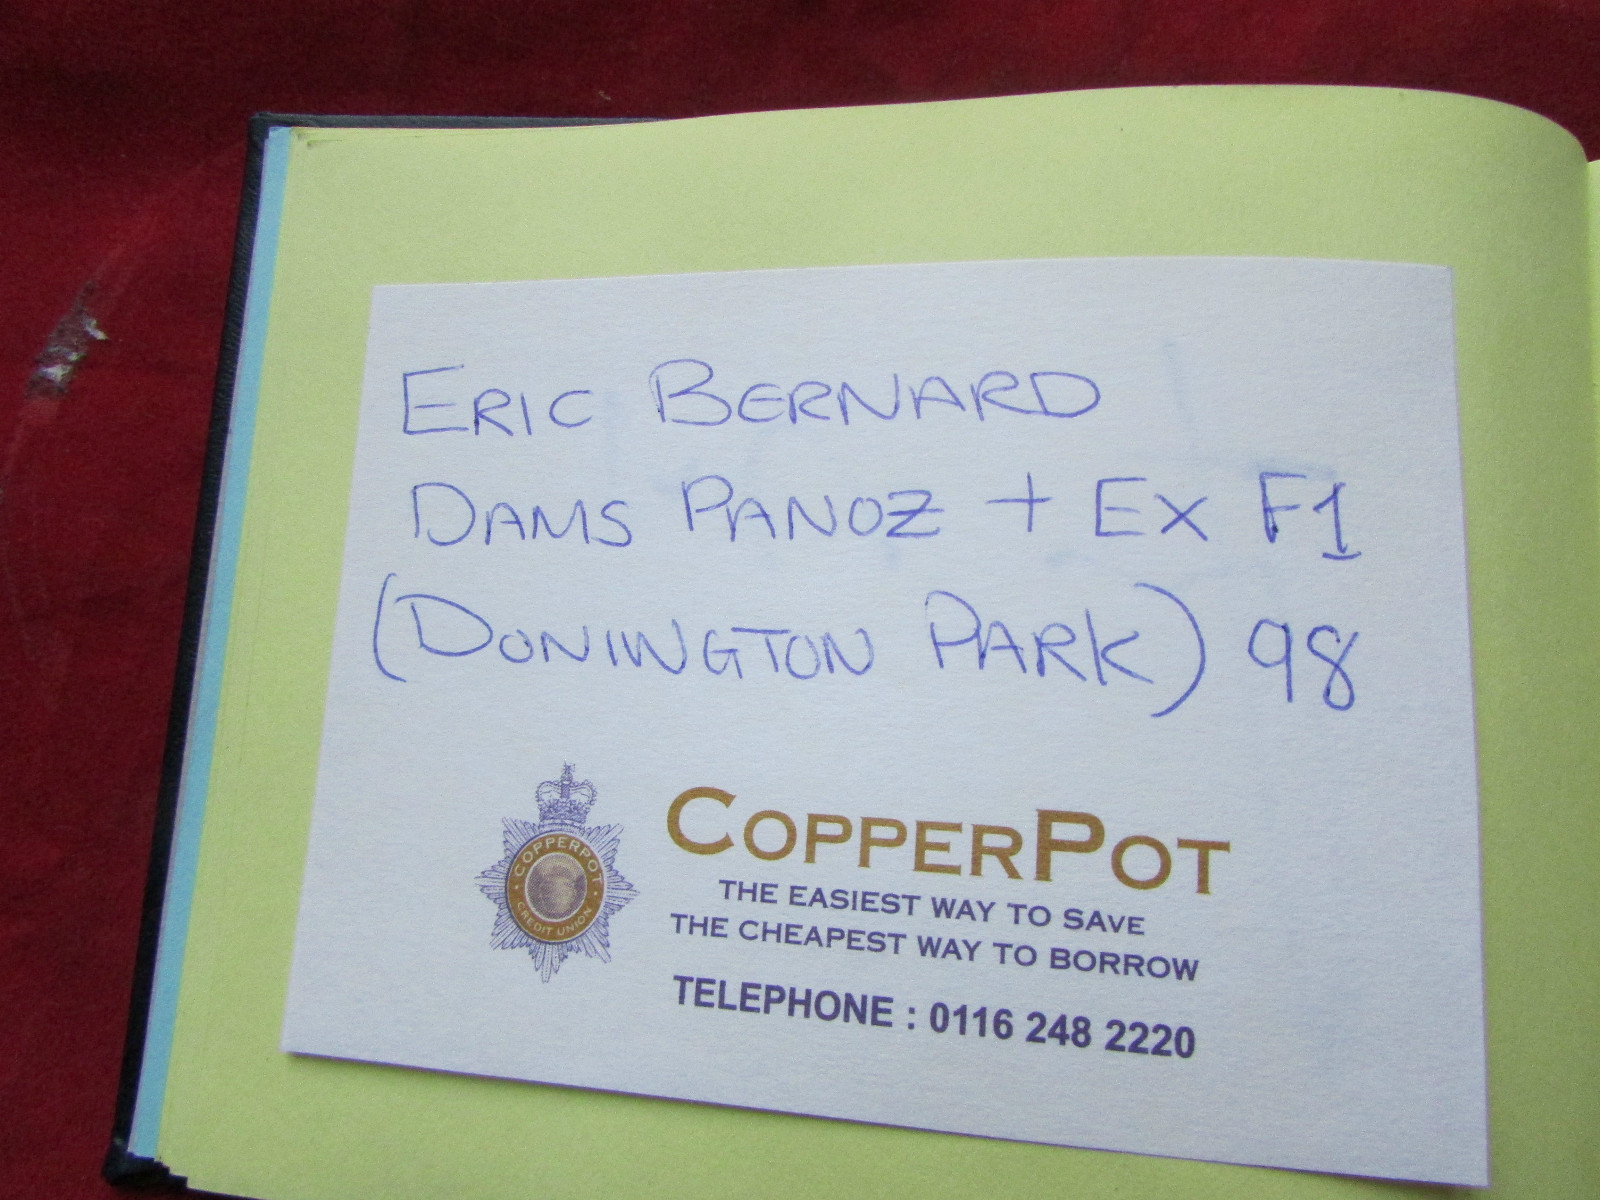 ERIC BERNARD
DAMS PANOZ + EX F1
(DONINGTON PARK) 98
COPPERPOT
CREDIT UNION
COPPERPOT
THE EASIEST WAY TO SAVE
THE CHEAPEST WAY TO BORROW
TELEPHONE : 0116 248 2220